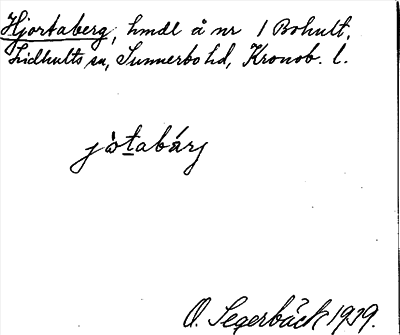 Hjortaberg, hmdl å nr 1 Bohult,
Lidhults sn, Sunnerbo hd, Kronob. l.
jo̊tabárj
O. Segerbäck 1929.